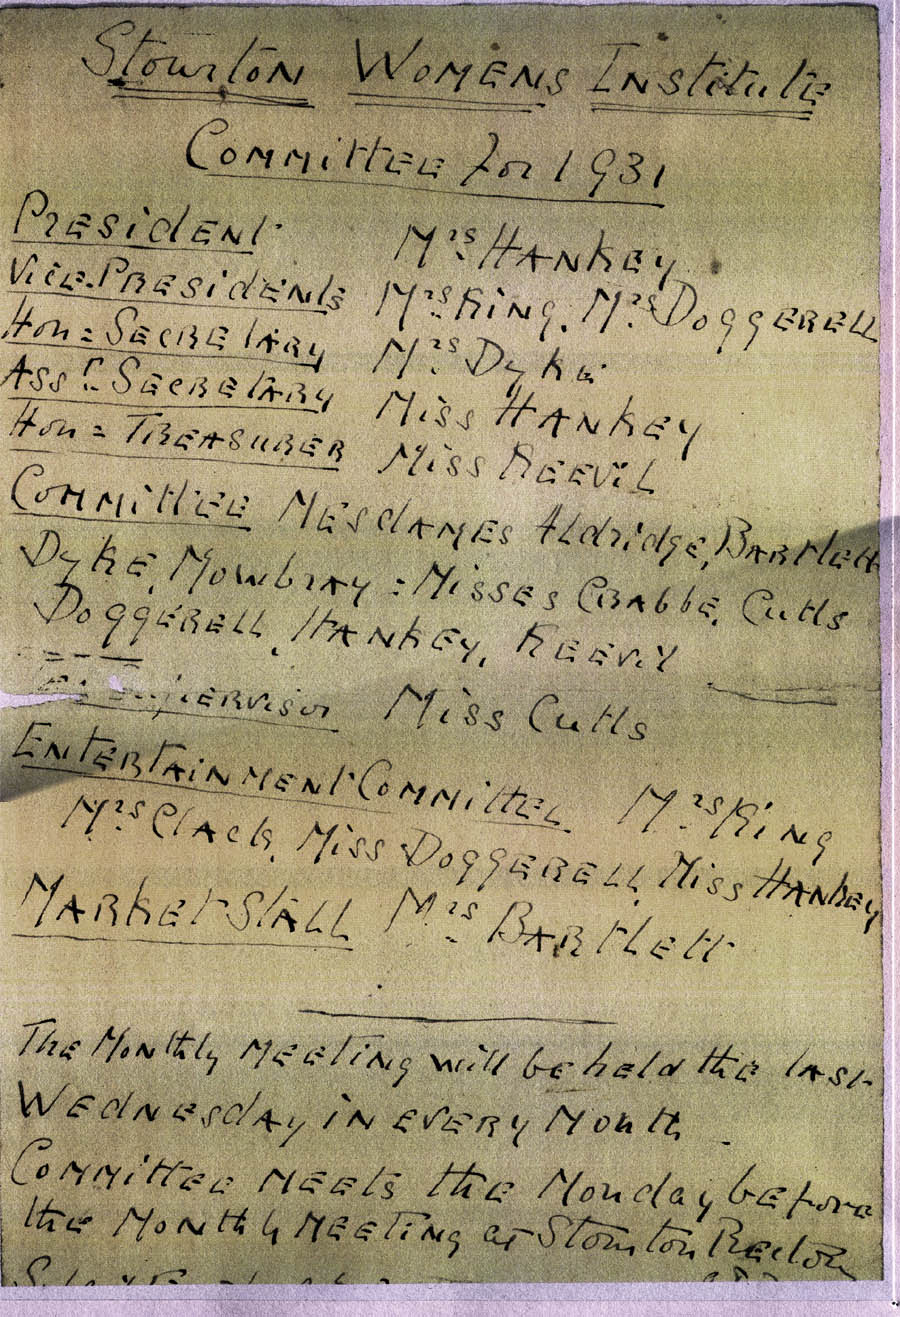 Stourton Womens Institute
Committee for 1931
President Mrs Hankey
Vice-Presidents Mrs King, Mrs Doggerell
Hon= Secretary Mrs Dyke
Asst Secretary Miss Hankey
Hon= Treasurer Miss Keevil
Committee Mesdames Aldridge, Bartlett
Dyke, Mowbray = Misses Crabbe, Cutts
Doggerell, Hankey, Keevil
Supervisor Miss Cutts
Entertainment Committee Mrs King
Mrs Clack, Miss Doggerell, Miss Hankey
Market Stall Mrs Bartlett
The Monthly Meeting will be held the last
Wednesday in every Month.
Committee meets the Monday before
the Monthly Meeting at Stourton Rectory